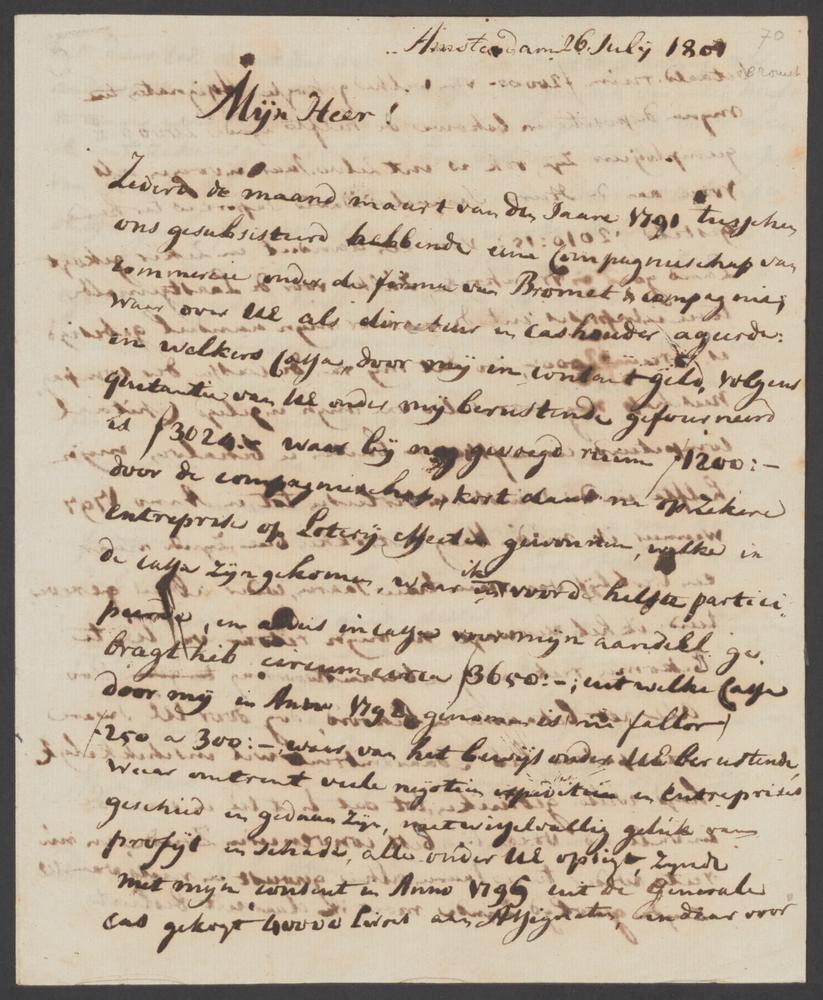 Amsterdam 26 July 1801
70
Bromet
Mijn Heer!
Zederd de maand maart van den Jaare 1791 tusschen
ons gesubsisteerd hebbende eene Compagnieschap van
Commercie onder de firma van Bromet & Compagnie,
waar over UE als directeur en Cashouder ageerde:
en welkers Cassa, door mij in contant geld, volgens
quitantie van UE onder mij berustende gefourneerd
is ƒ3024:- waar bij nog gevoegd ruim ƒ1200:-
door de compagnieschap, kort daar na op zekere
entreprise op Loterij effecten gewonnen, welke in
de cassa zijn gekomen, waar ik voor de helfte partici-
peerde, en aldus in cassa voor mijn aandeel ge-
bragt heb circum circa ƒ3650:-; uit welke Cassa
door mij in Anno 1792 genomen is (ni fallor)
ƒ250 a 300:-, waar van het bewijs onder UE berustende,
waar omtrent veele negotien expeditien en Entreprises
geschied en gedaan zijn, met wisselvallig geluk van
profijt en schade, alle onder UE opzigt, zijnde
met mijn consent in Anno 1795 uit de Generale
Cas gekogt 40000 Livres aan Assignaten, en daar voor